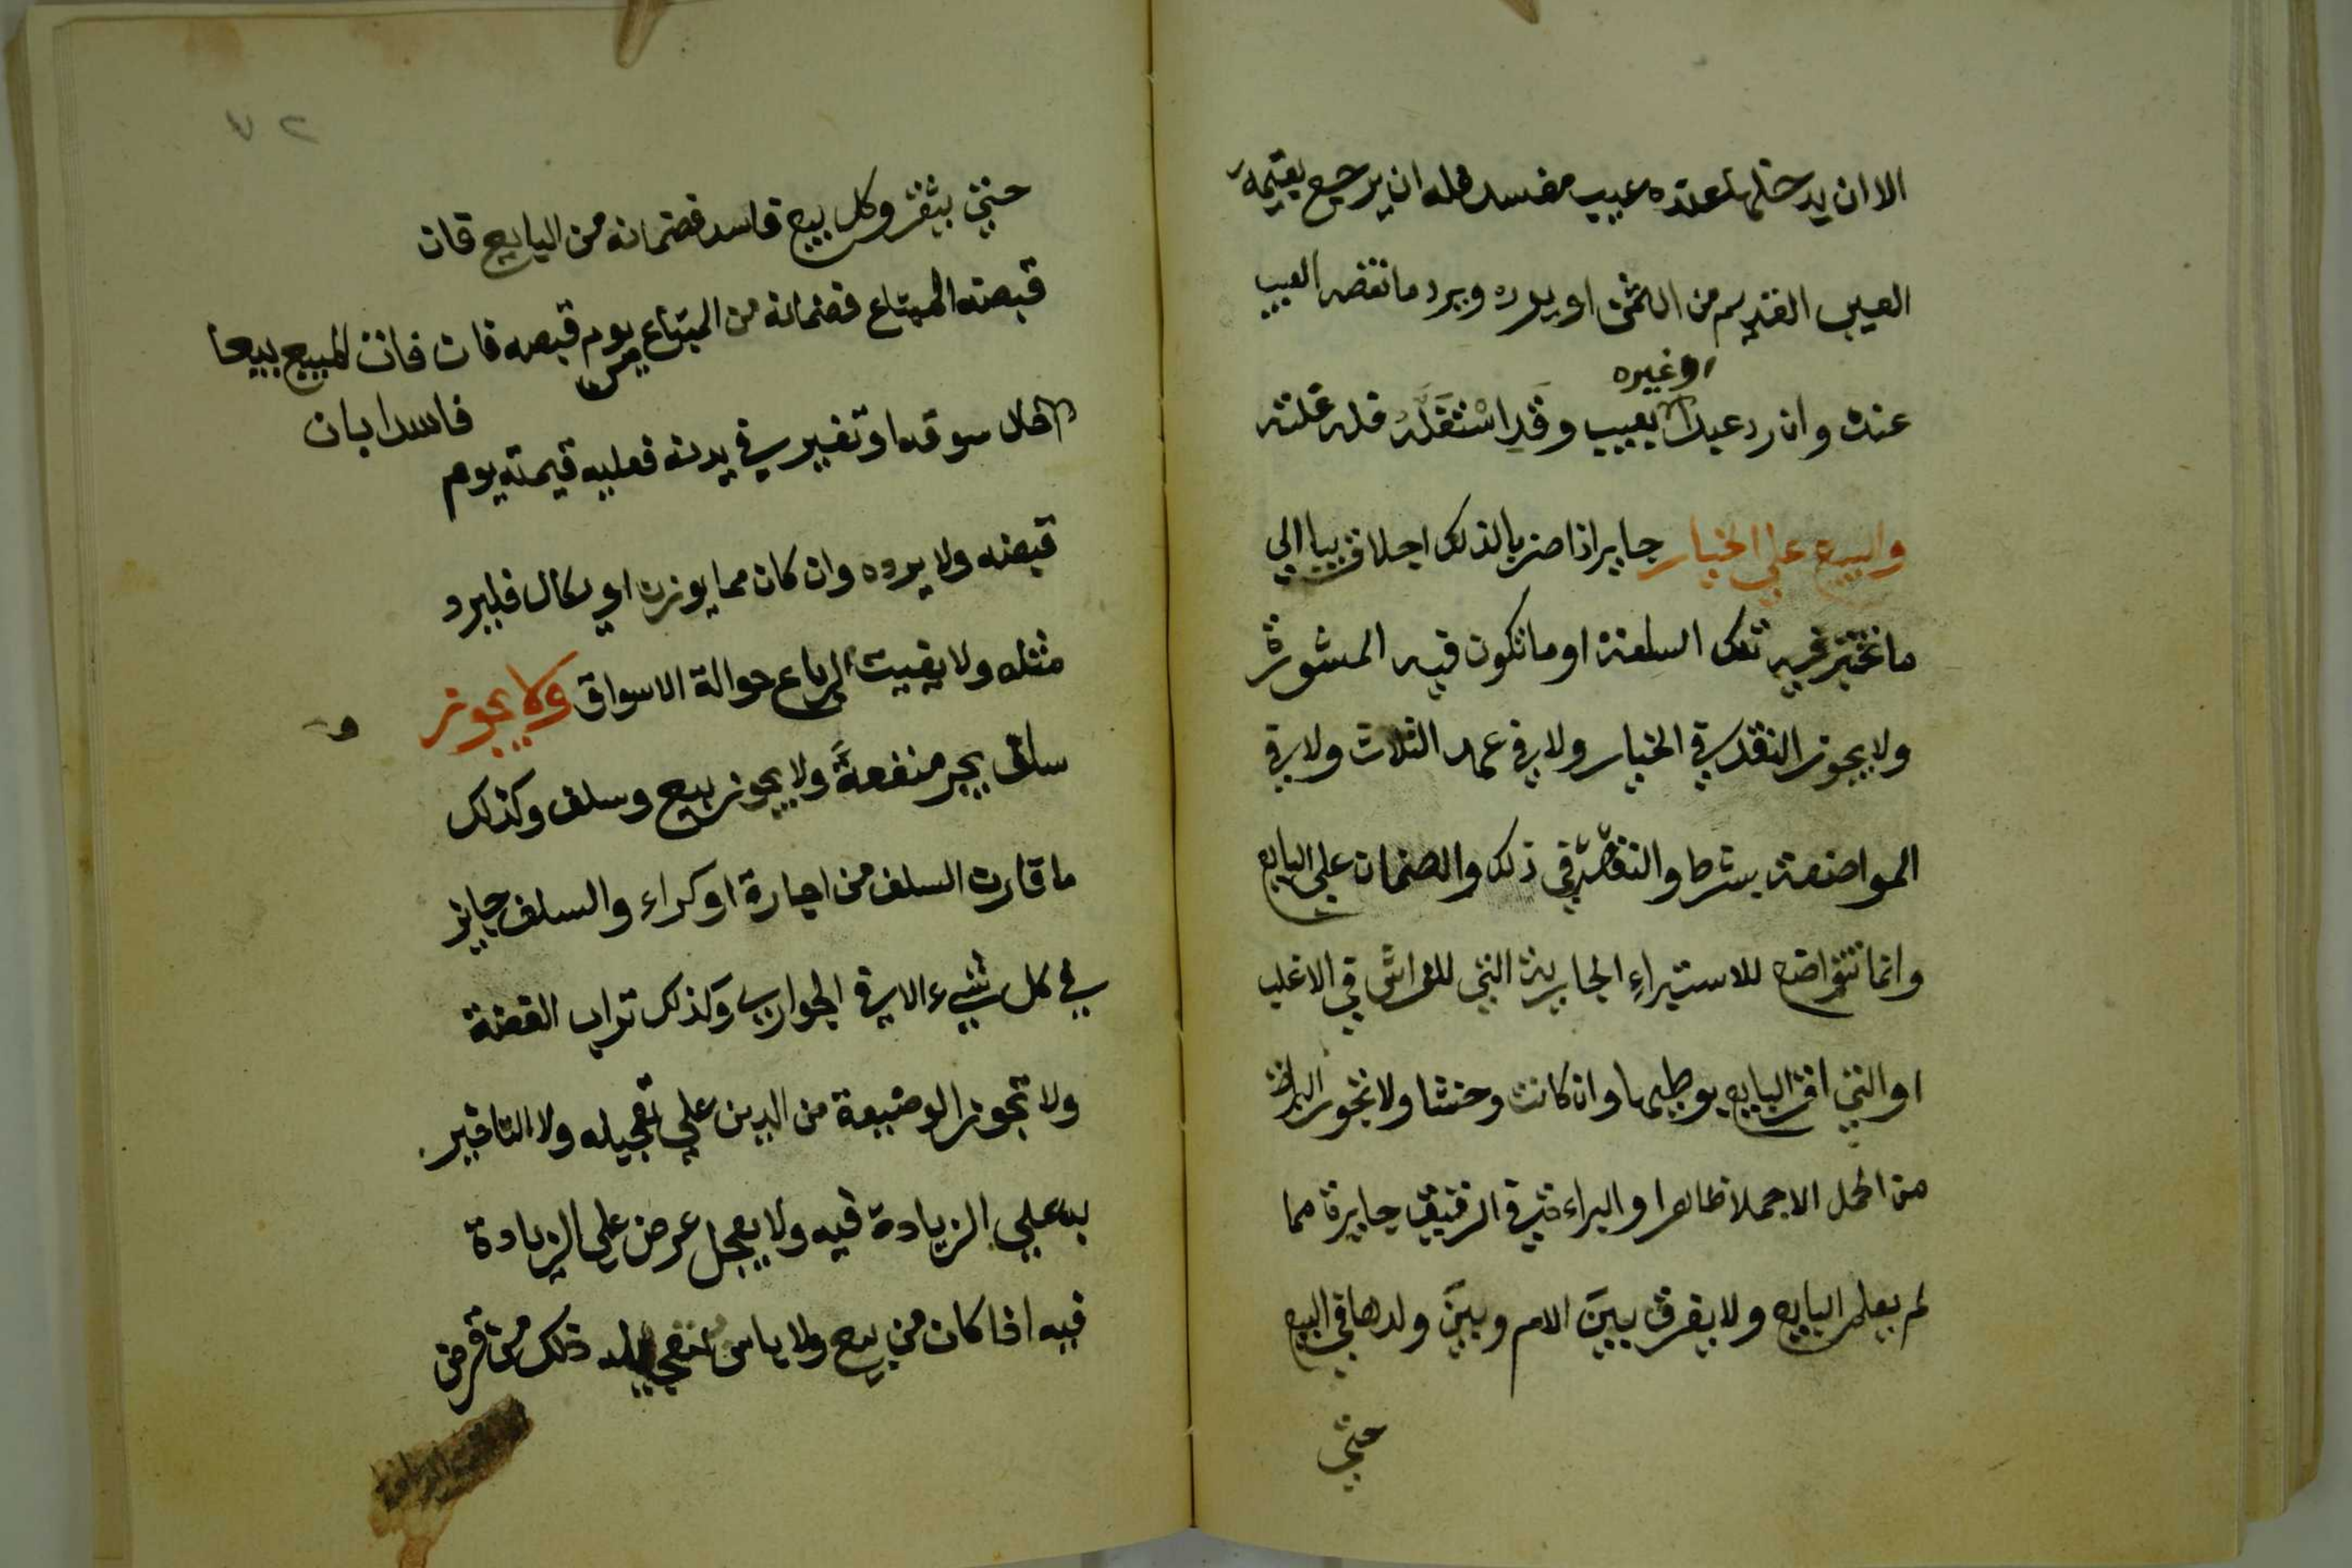 الا ان يدخلها عنده عيب مفسد فله ان يرجع بقيمة
العيب القديم من الثمن او يرده ويرد ما نقضه العيب
عنده وان رد عبدا بعيب وقد استغله فله غلته
او غيره
والبيع علي الخيار جايز اذا ضربا لذلك اجلا قريبا الي
ما تختبر فيه تلك السلعة او ما تكون فيه المشورة
ولا يجوز النقد في الخيار ولا في عهد الثلاث ولا في
المواضعة بشرط والنفقة في ذلك والضمان علي البايع
وانما تتواضع للاستبراء الجارية التي للفراش في الاغلب
او التي اقر البايع بوطيها وان كانت وخشا ولا تجوز البراة
من الحمل الا حملا ظاهرا والبراءة في الرقيق جايزة مما
لم يعلم البايع ولا يفرق بين الام وبين ولدها في البيع
حتي
٧٢
حتي يثغر وكل بيع فاسد فضمانه من البايع فان
قبضه المبتاع فضمانه من المبتاع من يوم قبضه فان فات المبيع بيعا
فاسدا بان
حال سوقه او تغير في بدنه فعليه قيمته يوم
قبضه ولا يرده وان كان مما يوزن او يكال فليرد
مثله ولا يفيت الرباع حوالة الاسواق ولا يجوز
سلف يجر منفعة ولا يجوز بيع وسلف وكذلك
ما قارن السلف من اجارة او كراء والسلف جايز
في كل شيء الا في الجواري وكذلك تراب الفضة
ولا تجوز الوضيعة من الدين علي تعجيله ولا التاخير
به علي الزيادة فيه ولا يعجل عرض علي الزيادة
فيه اذا كان من بيع ولا باس بتعجيله ذلك من قرض